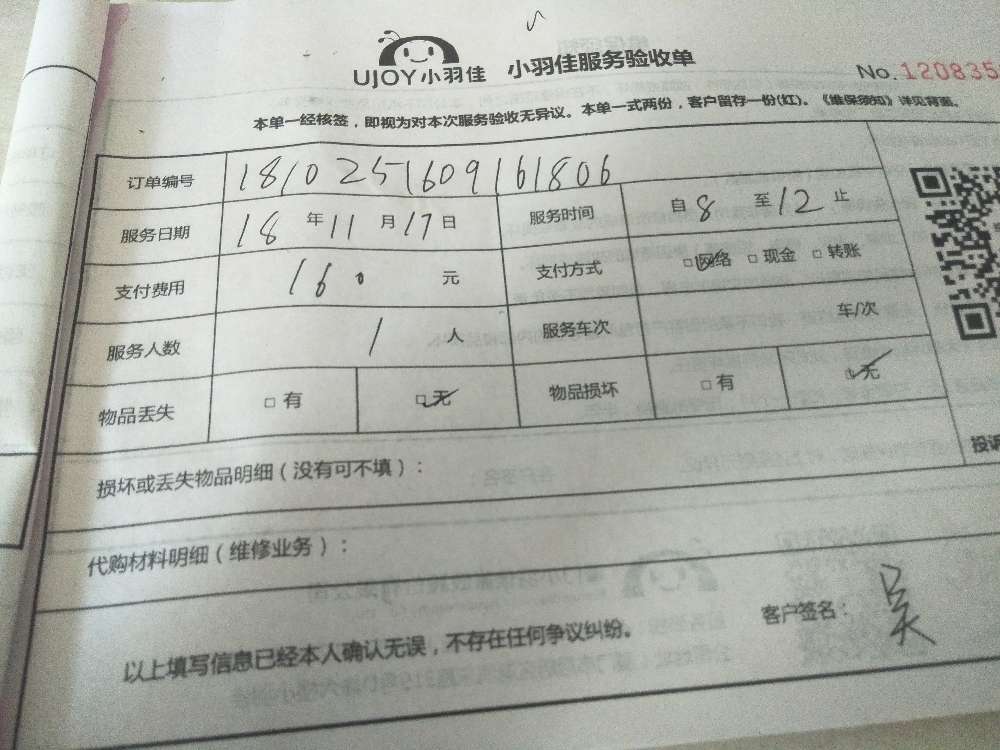 UJOY小羽佳 小羽佳服务验收单
No.120835
本单一经核签，即视为对本次服务验收无异议。本单一式两份，客户留存一份(红)。《维保须知》详见背面。
订单编号 1810251609161806
服务日期 18 年 11 月 17 日 服务时间 自 8 至 12 止
支付费用 160 元 支付方式 □网络 □现金 □转账
服务人数 1 人 服务车次 车/次
物品丢失 □有 □无 物品损坏 □有 □无
投诉
损坏或丢失物品明细（没有可不填）：
代购材料明细（维修业务）：
以上填写信息已经本人确认无误，不存在任何争议纠纷。 客户签名： 吴